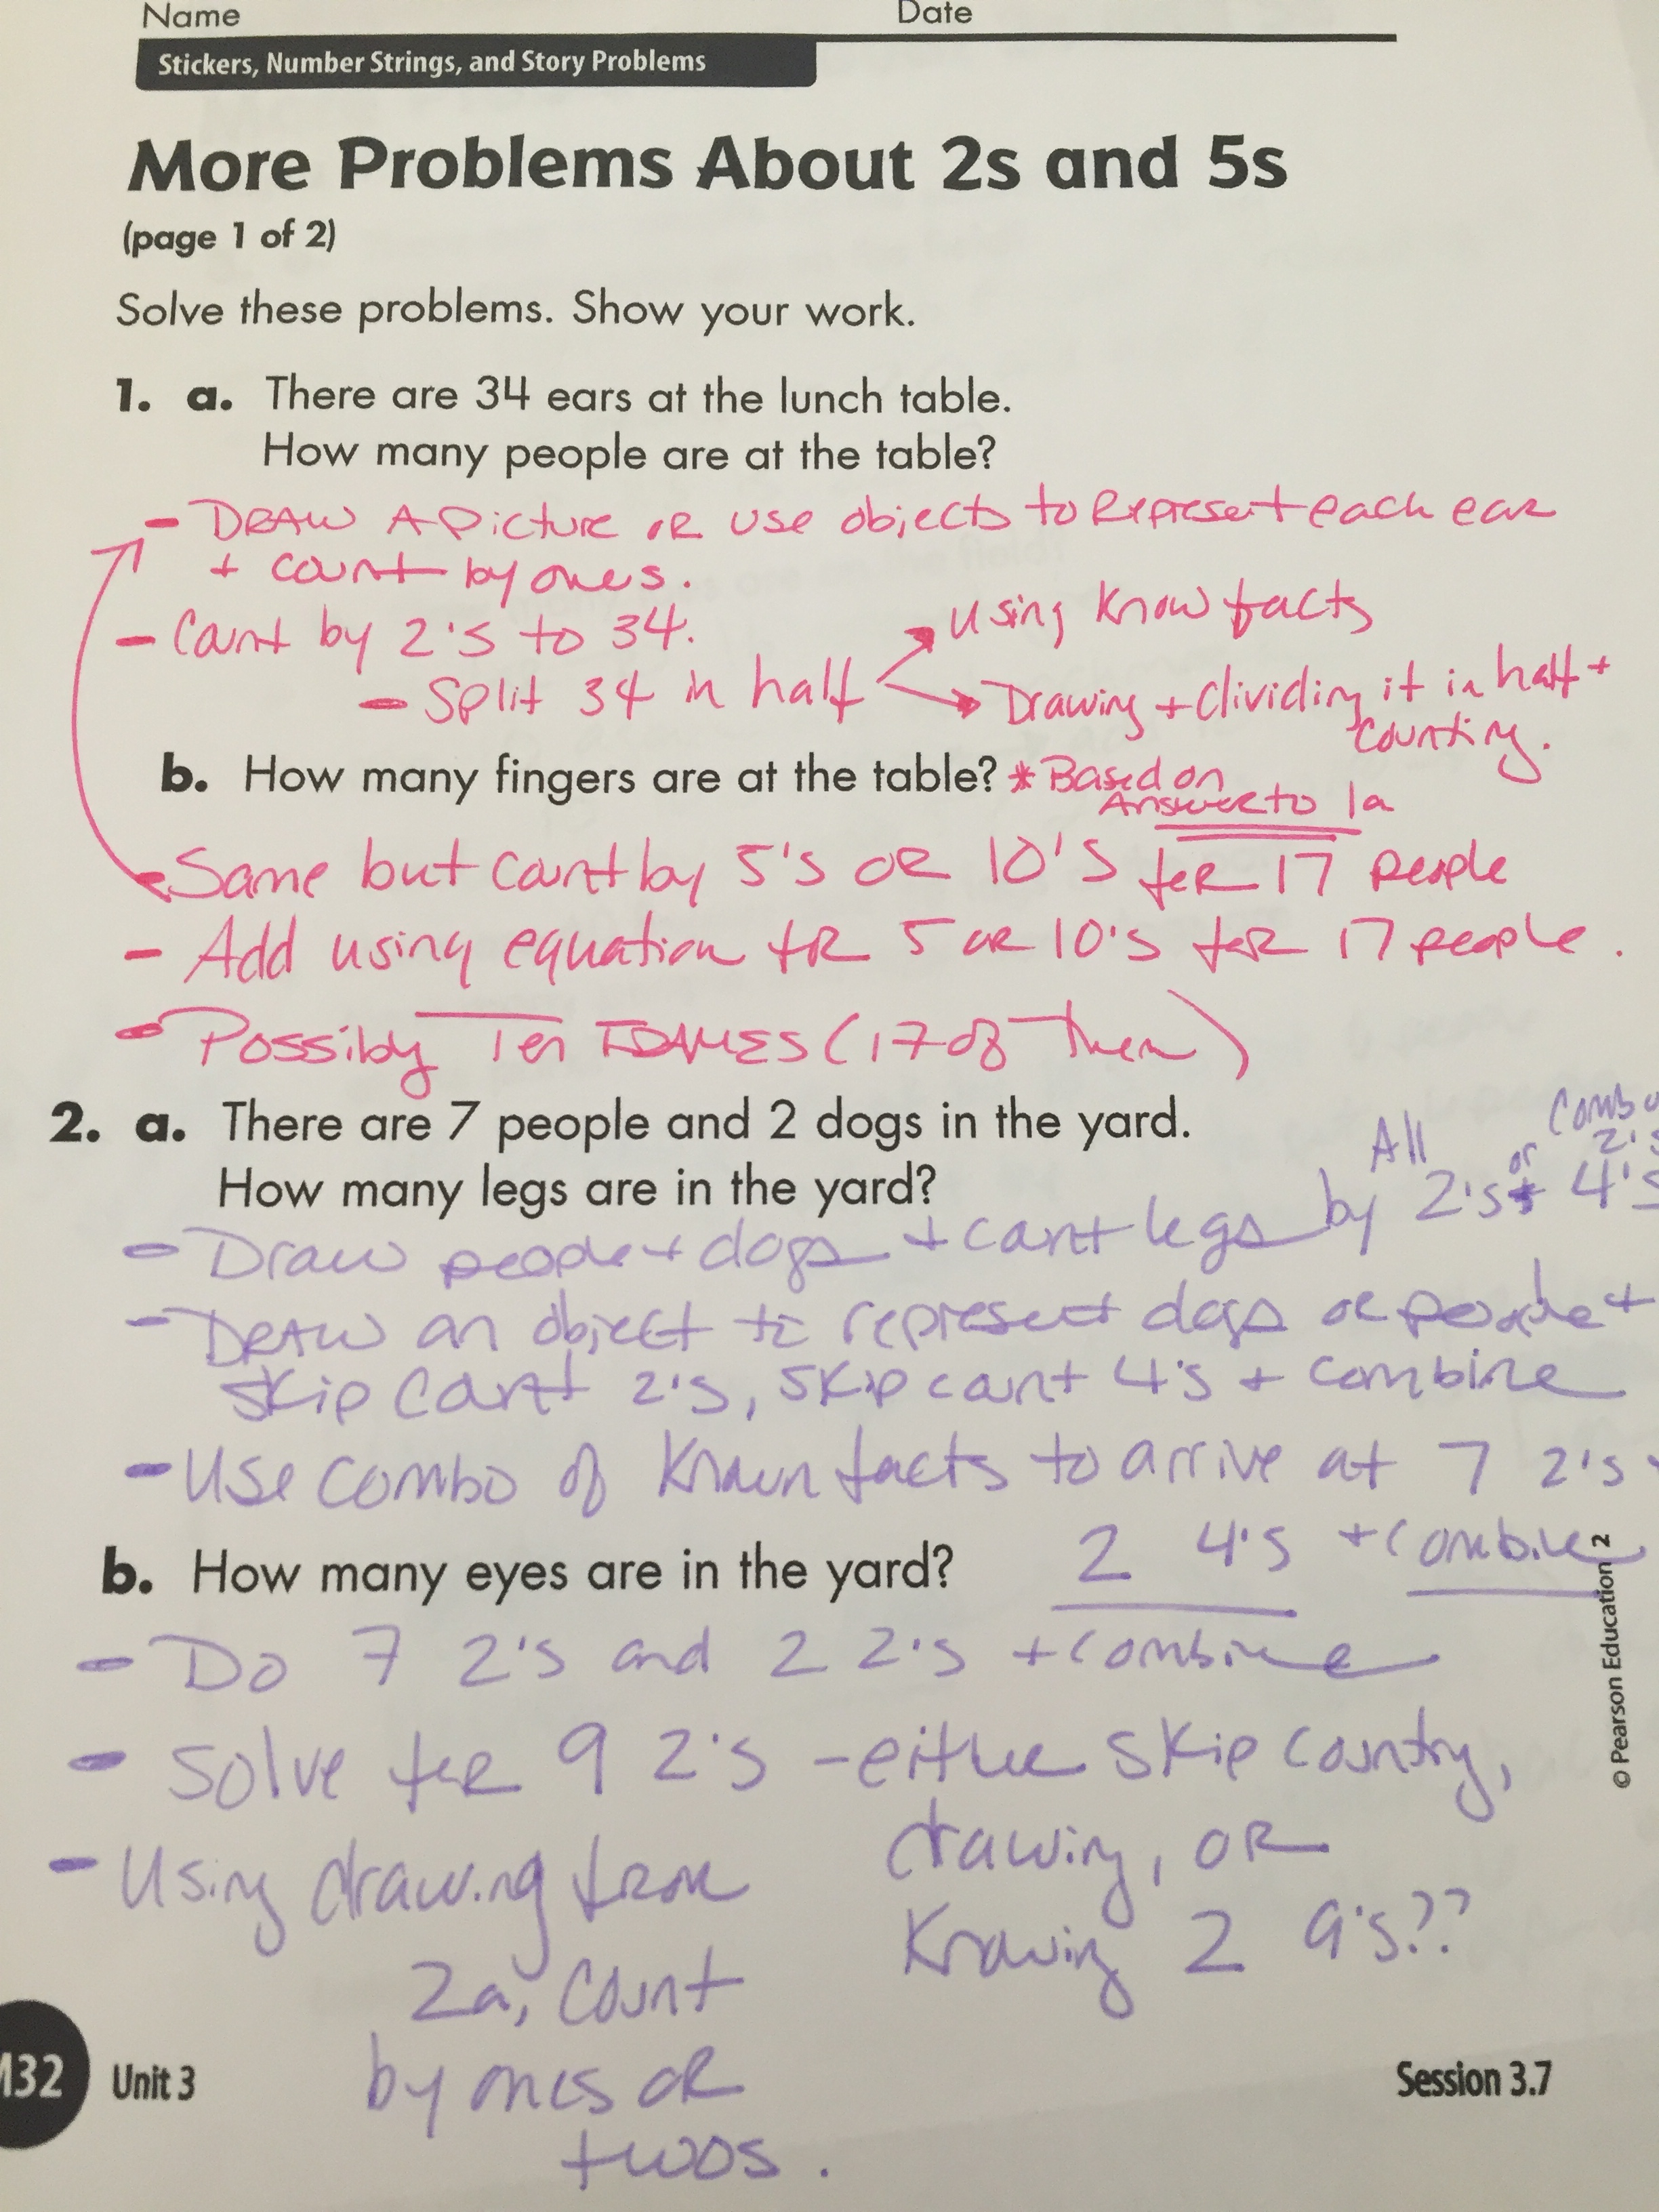 Name Date
Stickers, Number Strings, and Story Problems
More Problems About 2s and 5s
(page 1 of 2)
Solve these problems. Show your work.
1. a. There are 34 ears at the lunch table.
How many people are at the table?
- DRAW A Picture OR use objects to Represent each ear
+ count by ones.
- Count by 2's to 34.
- Split 34 in half
using know facts
Drawing + dividing it in half +
counting.
b. How many fingers are at the table? * Based on
Answer to 1a
- Same but count by 5's OR 10's for 17 people
- Add using equation for 5 or 10's for 17 people.
- Possibly Ten FRAMES (17 of them)
2. a. There are 7 people and 2 dogs in the yard.
How many legs are in the yard?
- Draw people + dogs + count legs by All 2's or 2's + 4's
- DRAW an object to represent dogs or people +
skip count 2's, skip count 4's + combine
- Use combo of known facts to arrive at 7 2's
2 4's + combine
b. How many eyes are in the yard?
- Do 7 2's and 2 2's + combine
- Solve for 9 2's - either skip counting,
drawing, OR
Knowing 2 9's??
- Using drawing from
2a, count
by ones OR
twos.
© Pearson Education 2
M32 Unit 3 Session 3.7